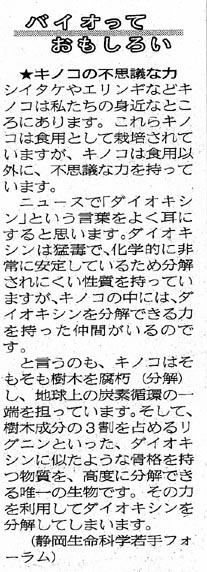 バイオって
おもしろい
★キノコの不思議な力
シイタケやエリンギなどキ
ノコは私たちの身近なとこ
ろにあります。これらキノ
コは食用として栽培されて
いますが、キノコは食用以
外に、不思議な力を持って
います。
ニュースで「ダイオキシ
ン」という言葉をよく耳に
すると思います。ダイオキ
シンは猛毒で、化学的に非
常に安定しているため分解
されにくい性質を持ってい
ますが、キノコの中には、ダ
イオキシンを分解できる力
を持った仲間がいるので
す。
と言うのも、キノコはそ
もそも樹木を腐朽（分解）
し、地球上の炭素循環の一
端を担っています。そして、
樹木成分の３割を占めるリ
グニンといった、ダイオキ
シンに似たような骨格を持
つ物質を、高度に分解でき
る唯一の生物です。その力
を利用してダイオキシンを
分解してしまいます。
（静岡生命科学若手フォ
ーラム）